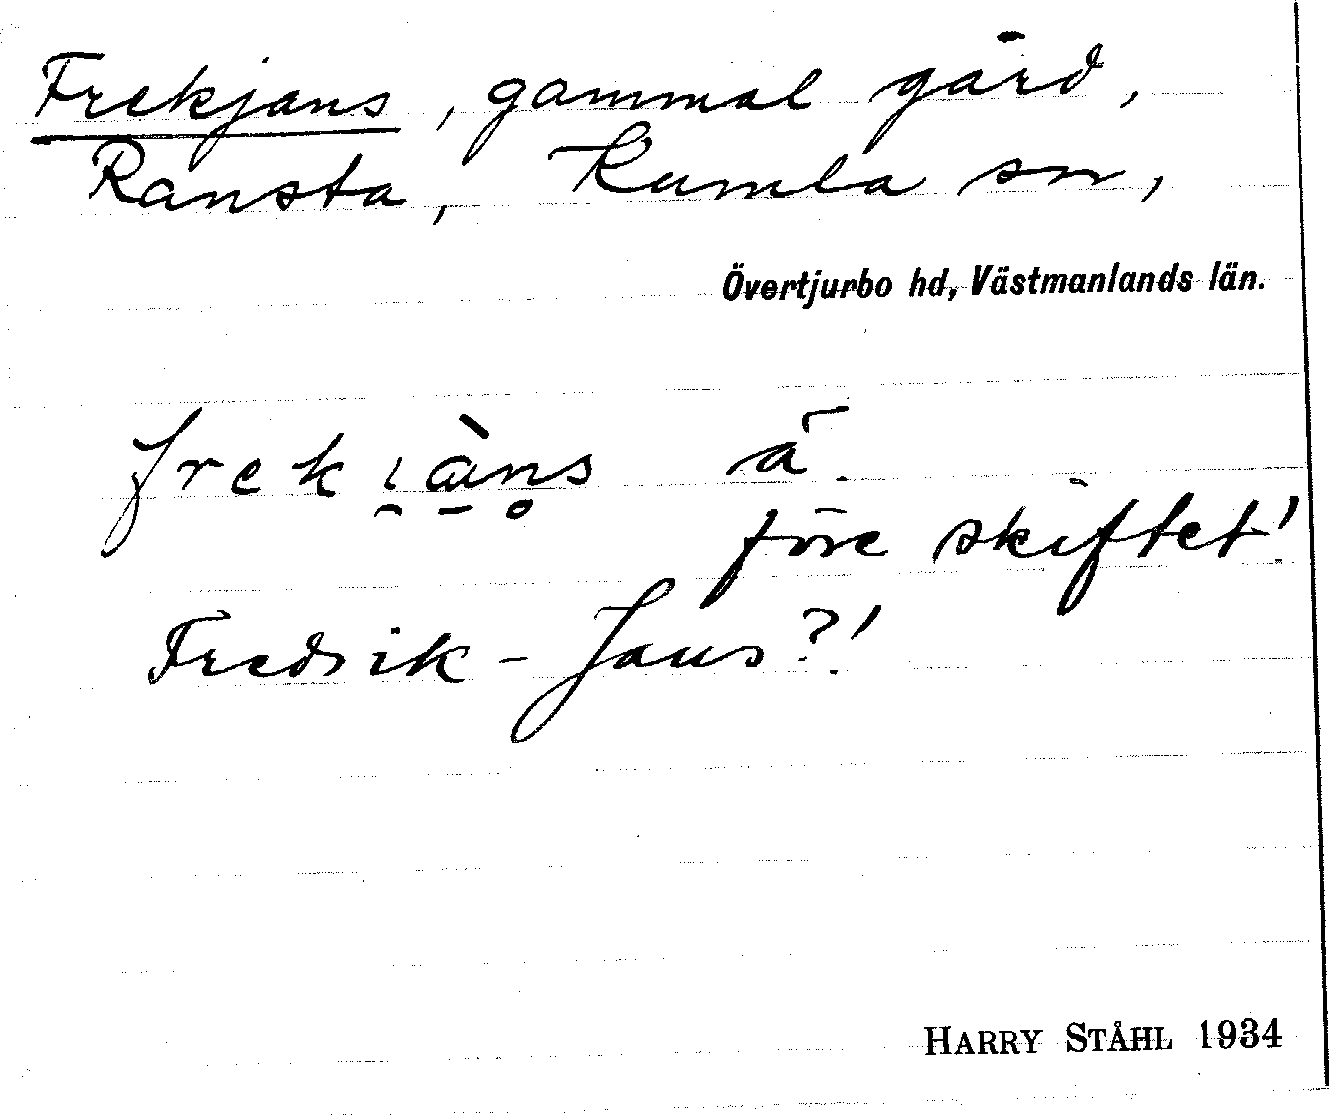 Frekjans, gammal gård,
Ransta, Kumla sn,
Övertjurbo hd, Västmanlands län.
frekjàns
före skiftet!
Fredrik-Jans?!
HARRY STÅHL 1934